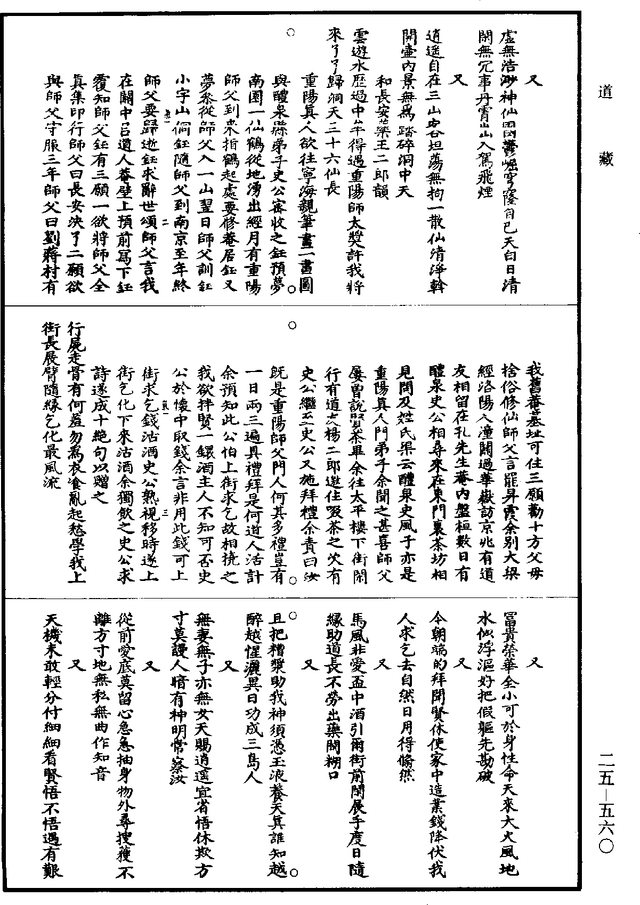 道藏
又
虛無浩渺神仙國鬱崛穹隆自已天白日清
閑無冗事丹霄出入駕飛煙
又
逍遥自在三山客坦蕩無拘一散仙清淨斡
開壺內景無為踏碎洞中天
和長安蘂王二郎韻
雲遊水歷過中年得遇重陽師太獎許我將
來了了歸洞天三十六仙長
重陽真人欲往寧海親筆畫一畫圖
與醴泉縣弟子史公審收之鈺預夢
南園一仙鶴從地湧出經月有重陽
師父到来指鶴起處要修菴居鈺又
夢叅從師父入一山翌日師父訓鈺
小字山侗鈺隨師父到南京至年終
師父要歸逝鈺求辭世頌師父言我
在關中吕道人菴壁上預前寫下鈺
覆知師父鈺有三願一欲將師父全
真集印行師父曰長安決了二願欲
與師父守服三年師父曰劉蔣村有
我舊菴基址可住三願勸十方父母
捨俗修仙師父言罷昇霞余别大梁
經洛陽入潼關過華嶽訪京兆有道
友相留在孔先生菴內盤桓數日有
醴泉史公相尋來在東門裏茶坊相
見問及姓氏渠云醴泉史風子亦是
重陽真人門弟子余聞之甚喜師父
屡曾說賢茶畢余往太平樓下街閑
行有道士楊二郎邀住啜茶之次有
史公繼至史公又施拜禮余責曰汝
既是重陽師父門人何其多禮豈有
一日兩三遍具禮拜是何道人活計
余預知此公怕上街求乞故相撓之
我欲拜賢一鏍酒主人不知可否史
公於懷中取錢余言非用此錢可上
街求乞錢沽酒史公熟視移時遂上
街乞化下來沽酒余獨飲之史公求
詩遂成十絶句以贈之
行屍走骨有何羞勿為衣飡亂起愁學我上
街長展臂隨緣乞化最風流
又
富貴榮華全小可於身性命天來大火風地
水似浮漚好把假軀先勘破
又
今朝端的拜聞賢休使家中造業錢降伏我
人求乞去自然日用得翛然
又
馬風非愛盃中酒引爾街前閑展手度日隨
緣助道長不勞出藥閑糊口
又
且把糟漿助我神須憑玉液養天真誰知越
醉越惺灑異日功成三島人
又
無妻無子亦無女天賜逍遥宜省悟休欺方
寸莫謾人暗有神明常察汝
又
從前愛底莫留心急急抽身物外尋搜獲不
離方寸地無私無曲作知音
又
天機未敢輕分付細細看賢悟不悟遇有艱
二五—五六〇